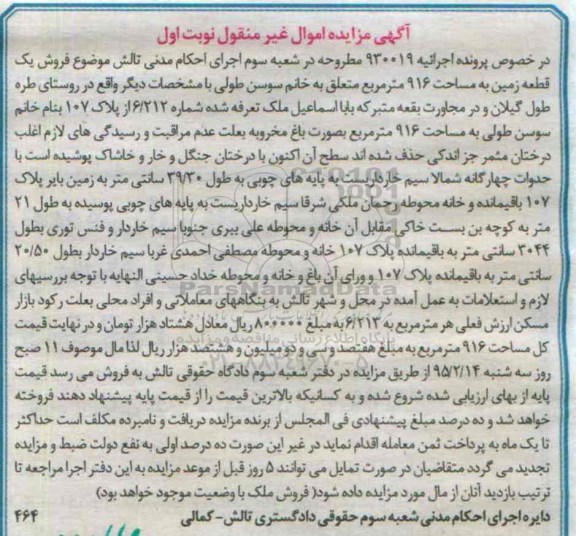 آگهی مزایده اموال غیر منقول نوبت اول
در خصوص پرونده اجرائیه ۹۳۰۰۱۹ مطروحه در شعبه سوم اجرای احکام مدنی تالش موضوع فروش یک
قطعه زمین به مساحت ۹۱۶ مترمربع متعلق به خانم سوسن طولی با مشخصات دیگر واقع در روستای طره
طول گیلان و در مجاورت بقعه متبرکه بابا اسماعیل ملک تعرفه شده شماره ۶/۲۱۲ از پلاک ۱۰۷ بنام خانم
سوسن طولی به مساحت ۹۱۶ مترمربع بصورت باغ مخروبه بعلت عدم مراقبت و رسیدگی های لازم اغلب
درختان مثمر جز اندکی حذف شده اند سطح آن اکنون با درختان جنگل و خار و خاشاک پوشیده است با
حدوات چهارگانه شمالا سیم خارداریست به پایه های چوبی به طول ۳۹/۳۰ سانتی متر به زمین بایر پلاک
۱۰۷ باقیمانده و خانه محوطه رحمان ملکی شرقا سیم خارداریست به پایه های چوبی پوسیده به طول ۲۱
متر به کوچه بن بست خاکی مقابل آن خانه و محوطه علی ببری جنوبا سیم خاردار و فنس توری بطول
۳۰۴۴ سانتی متر به باقیمانده پلاک ۱۰۷ خانه و محوطه مصطفی احمدی غربا سیم خاردار بطول ۲۰/۵۰
سانتی متر به باقیمانده پلاک ۱۰۷ و ورای آن باغ و خانه و محوطه خداد حسینی النهایه با توجه بررسیهای
لازم و استعلامات به عمل آمده در محل و شهر تالش به بنگاههای معاملاتی و افراد محلی بعلت رکود بازار
مسکن ارزش فعلی هر مترمربع به ۶/۲۱۳ به مبلغ ۸۰۰۰۰۰ ریال معادل هشتاد هزار تومان و در نهایت قیمت
کل مساحت ۹۱۶ مترمربع به مبلغ هفتصد و سی و دو میلیون و هشتصد هزار ریال لذا مال موصوف ۱۱ صبح
روز سه شنبه ۹۵/۲/۱۴ از طریق مزایده در دفتر شعبه سوم دادگاه حقوقی تالش به فروش می رسد قیمت
پایه از بهای ارزیابی شده شروع شده و به کسانیکه بالاترین قیمت را از قیمت پایه پیشنهاد دهند فروخته
خواهد شد و ده درصد مبلغ پیشنهادی فی المجلس از برنده مزایده دریافت و نامبرده مکلف است حداکثر
تا یک ماه به پرداخت ثمن معامله اقدام نماید در غیر این صورت ده درصد اولی به نفع دولت ضبط و مزایده
تجدید می گردد متقاضیان در صورت تمایل می توانند ۵ روز قبل از موعد مزایده به این دفتر اجرا مراجعه تا
ترتیب بازدید آنان از مال مورد مزایده داده شود( فروش ملک با وضعیت موجود خواهد بود)
دایره اجرای احکام مدنی شعبه سوم حقوقی دادگستری تالش- کمالی ۴۶۴
ParsNamadData
پایگاه اطلاع رسانی مناقصه و مزایده